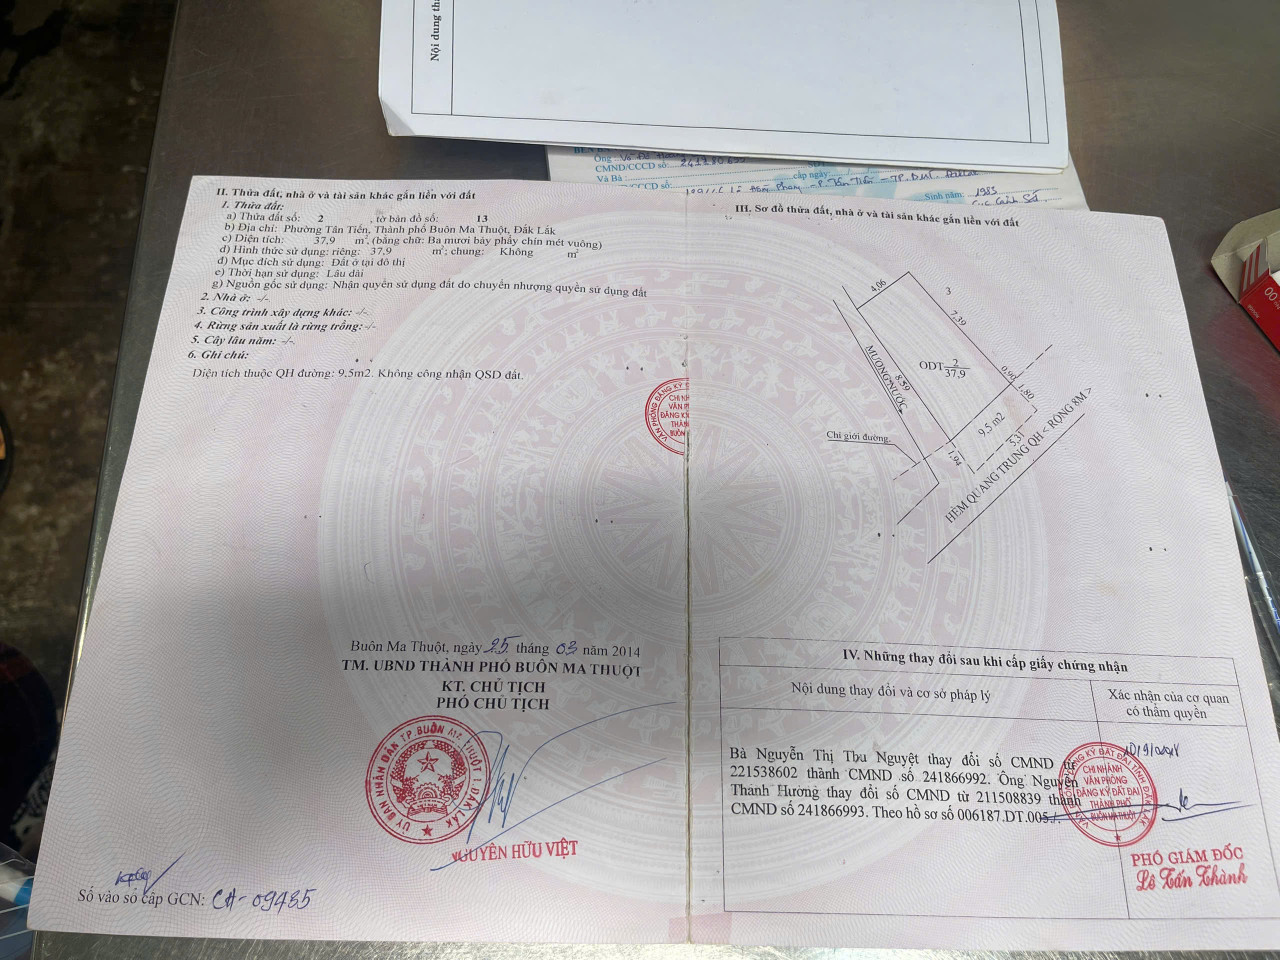 Nội dung th
Ông
CMND/CCCD số:
cấp ngày
Và Bà :
CCCD số:
Sinh năm: 1983
II. Thửa đất, nhà ở và tài sản khác gắn liền với đất
1. Thửa đất:
a) Thửa đất số: 2 , tờ bản đồ số: 13
b) Địa chỉ: Phường Tân Tiến, Thành phố Buôn Ma Thuột, Đắk Lắk
c) Diện tích: 37,9 m², (bằng chữ: Ba mươi bảy phẩy chín mét vuông)
d) Hình thức sử dụng: riêng: 37,9 m²; chung: Không m²
đ) Mục đích sử dụng: Đất ở tại đô thị
e) Thời hạn sử dụng: Lâu dài
g) Nguồn gốc sử dụng: Nhận quyền sử dụng đất do chuyển nhượng quyền sử dụng đất
2. Nhà ở: -/-
3. Công trình xây dựng khác: -/-
4. Rừng sản xuất là rừng trồng: -/-
5. Cây lâu năm: -/-
6. Ghi chú:
Diện tích thuộc QH đường: 9,5m2. Không công nhận QSD đất.
Buôn Ma Thuột, ngày 25 tháng 03 năm 2014
TM. UBND THÀNH PHỐ BUÔN MA THUỘT
KT. CHỦ TỊCH
PHÓ CHỦ TỊCH
ỦY BAN NHÂN DÂN TP.BUÔN MA THUỘT T.ĐẮK LẮK
NGUYỄN HỮU VIỆT
Số vào sổ cấp GCN: CH-09435
III. Sơ đồ thửa đất, nhà ở và tài sản khác gắn liền với đất
4,06
3
7,39
MƯƠNG NƯỚC
8,59
ODT 2
37,9
0,90
1,80
9,5 m2
5,31
1,94
Chỉ giới đường.
HẺM QUANG TRUNG QH < RỘNG 8M >
VĂN PHÒNG ĐĂNG KÝ
CHI NH
VĂN P
ĐĂNG K
THÀN
BUÔN
IV. Những thay đổi sau khi cấp giấy chứng nhận
Nội dung thay đổi và cơ sở pháp lý
Xác nhận của cơ quan
có thẩm quyền
Bà Nguyễn Thị Thu Nguyệt thay đổi số CMND từ
221538602 thành CMND số 241866992. Ông Nguyễn
Thanh Hường thay đổi số CMND từ 211508839 thành
CMND số 241866993. Theo hồ sơ số 006187.DT.005.
VĂN PHÒNG ĐĂNG KÝ ĐẤT ĐAI TỈNH ĐẮK LẮK
CHI NHÁNH
VĂN PHÒNG
ĐĂNG KÝ ĐẤT ĐAI
THÀNH PHỐ
BUÔN MA THUỘT
PHÓ GIÁM ĐỐC
Lê Tấn Thành